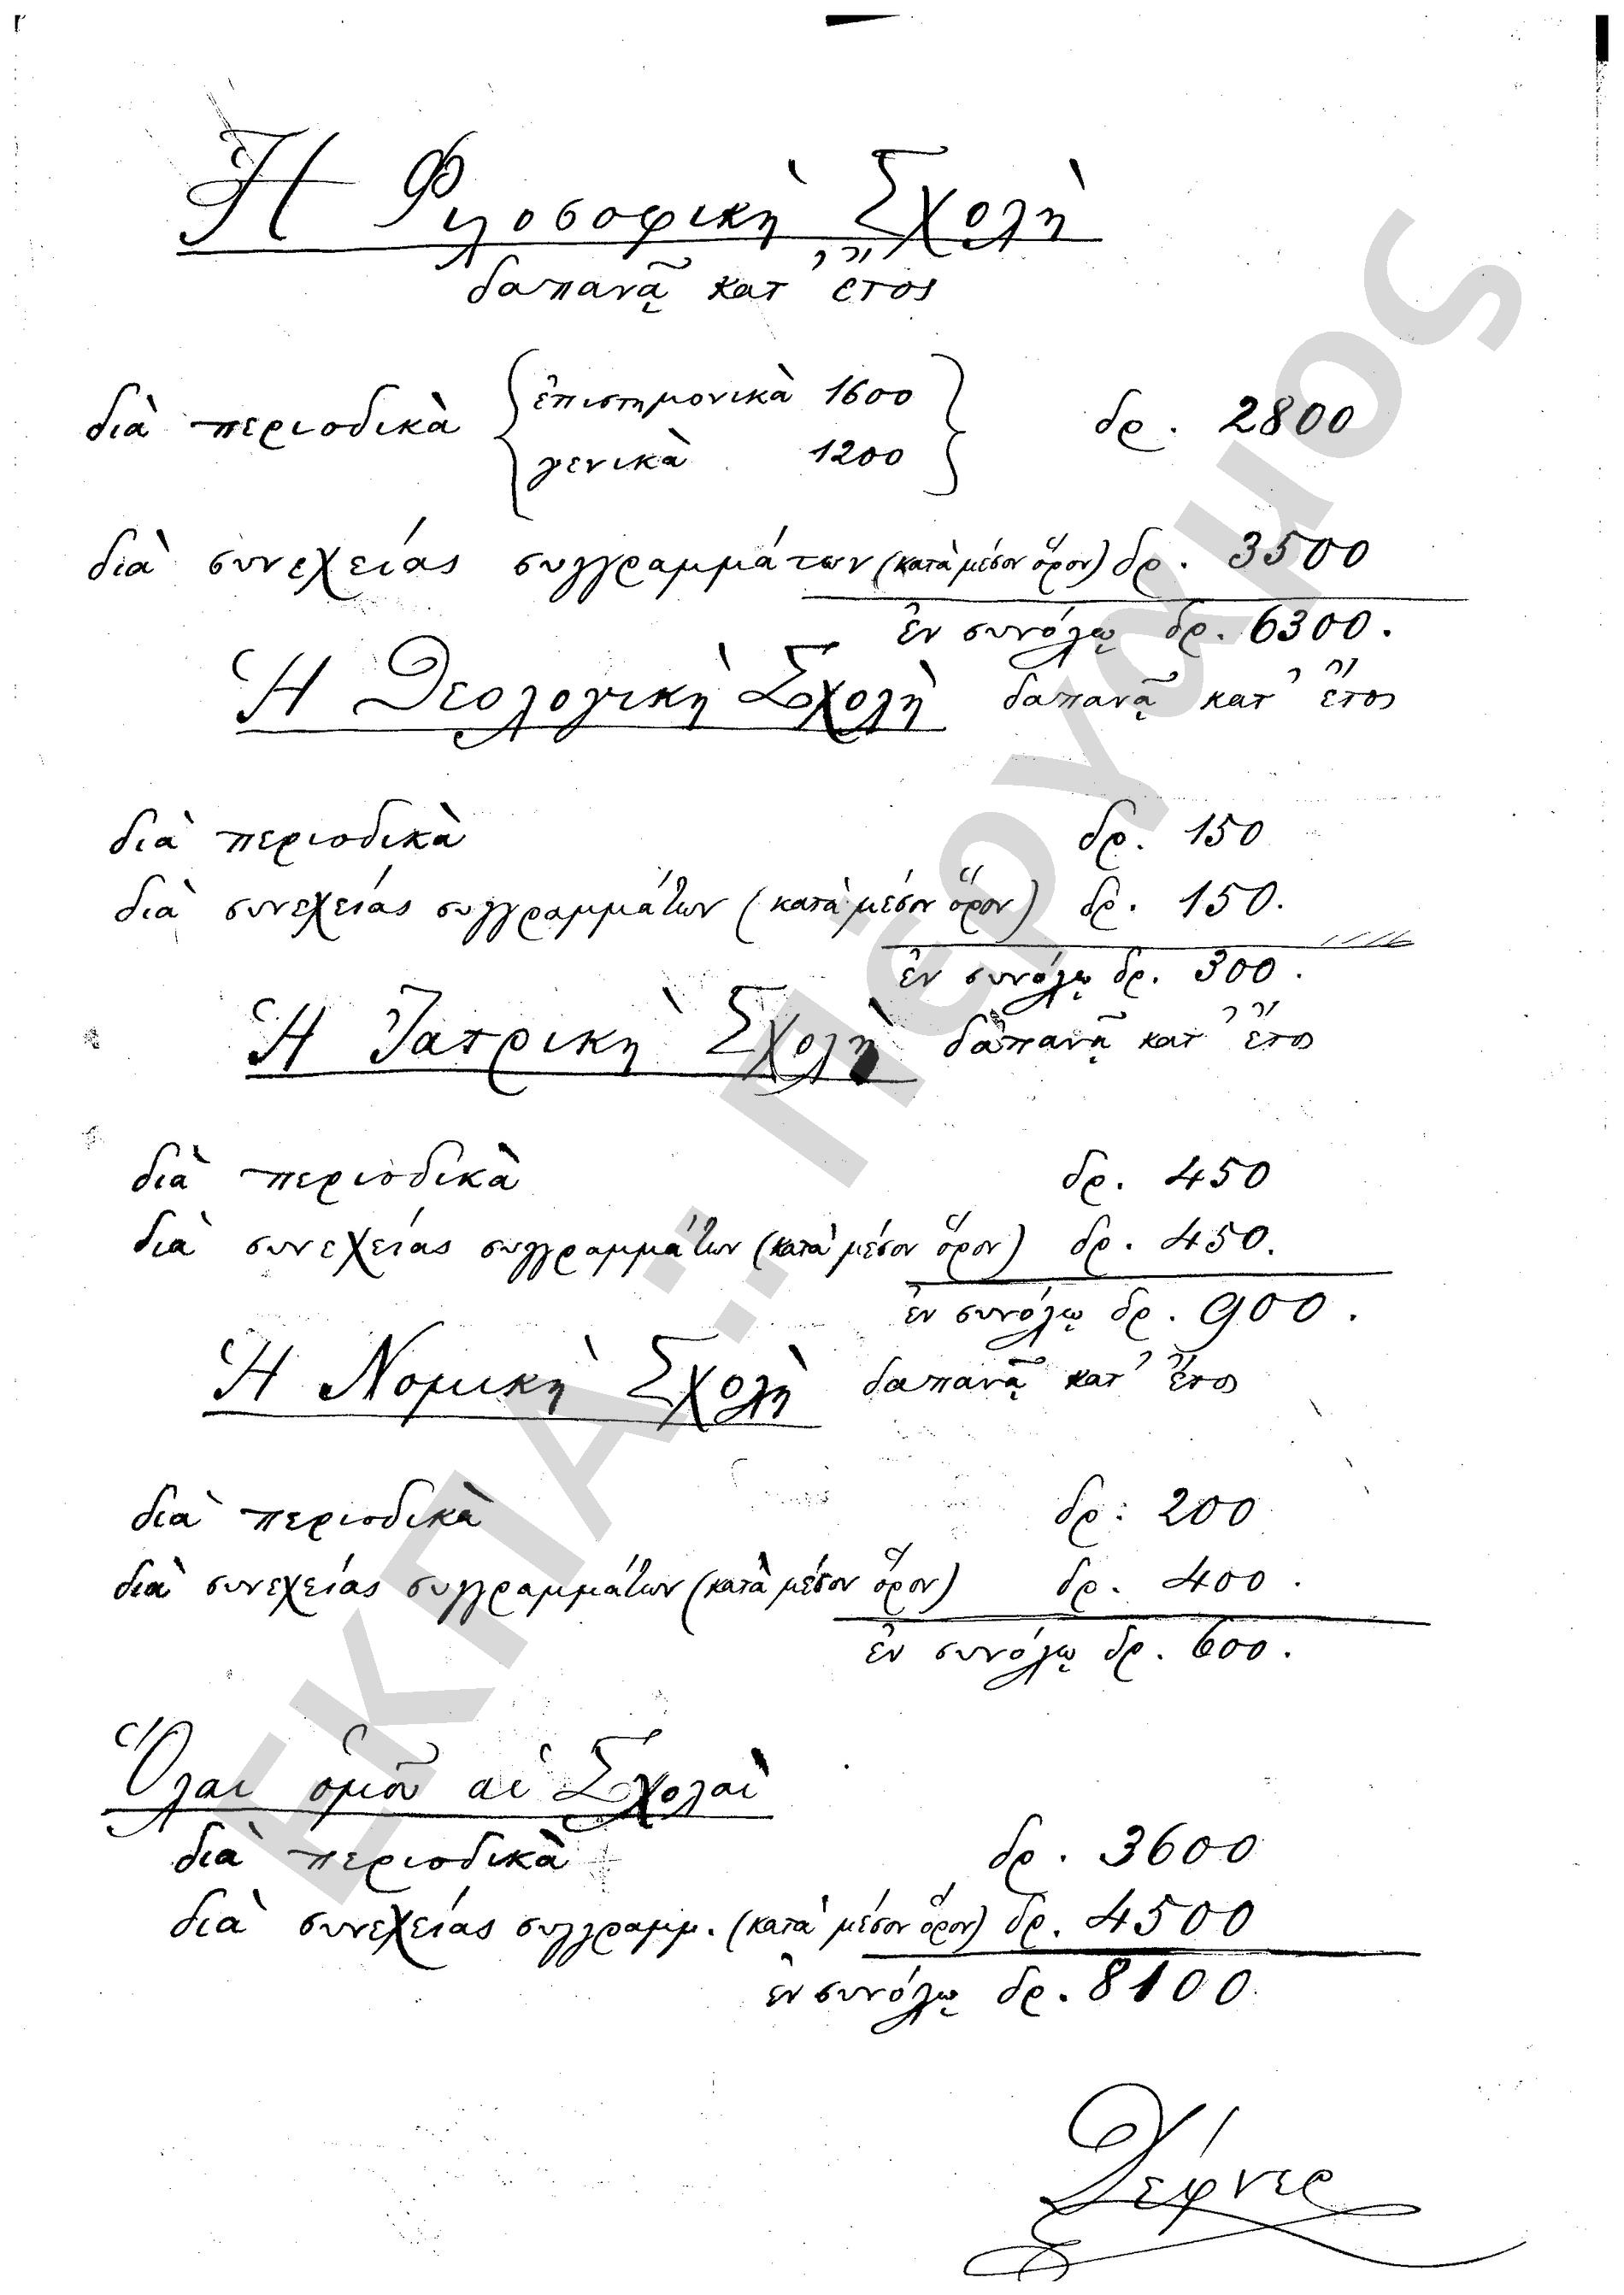 Ἡ Φιλοσοφικὴ Σχολὴ
δαπανᾷ κατ' ἔτος
διὰ περιοδικὰ { ἐπιστημονικὰ 1600 } δρ. 2800
γενικὰ 1200
διὰ συνεχείας συγγραμμάτων (κατὰ μέσον ὅρον) δρ. 3500
ἐν συνόλῳ δρ. 6300.
Ἡ Θεολογικὴ Σχολὴ δαπανᾷ κατ' ἔτος
διὰ περιοδικὰ δρ. 150
διὰ συνεχείας συγγραμμάτων (κατὰ μέσον ὅρον) δρ. 150.
ἐν συνόλῳ δρ. 300.
Ἡ Ἰατρικὴ Σχολὴ δαπανᾷ κατ' ἔτος
διὰ περιοδικὰ δρ. 450
διὰ συνεχείας συγγραμμάτων (κατὰ μέσον ὅρον) δρ. 450.
ἐν συνόλῳ δρ. 900.
Ἡ Νομικὴ Σχολὴ δαπανᾷ κατ' ἔτος
διὰ περιοδικὰ δρ: 200
διὰ συνεχείας συγγραμμάτων (κατὰ μέσον ὅρον) δρ. 400.
ἐν συνόλῳ δρ. 600.
Ὅλαι ὁμοῦ αἱ Σχολαὶ
διὰ περιοδικὰ δρ. 3600
διὰ συνεχείας συγγραμμ. (κατὰ μέσον ὅρον) δρ. 4500
ἐν συνόλῳ δρ. 8100.
Δέφνερ
ΕΚΠΑ.. Πέργαμος